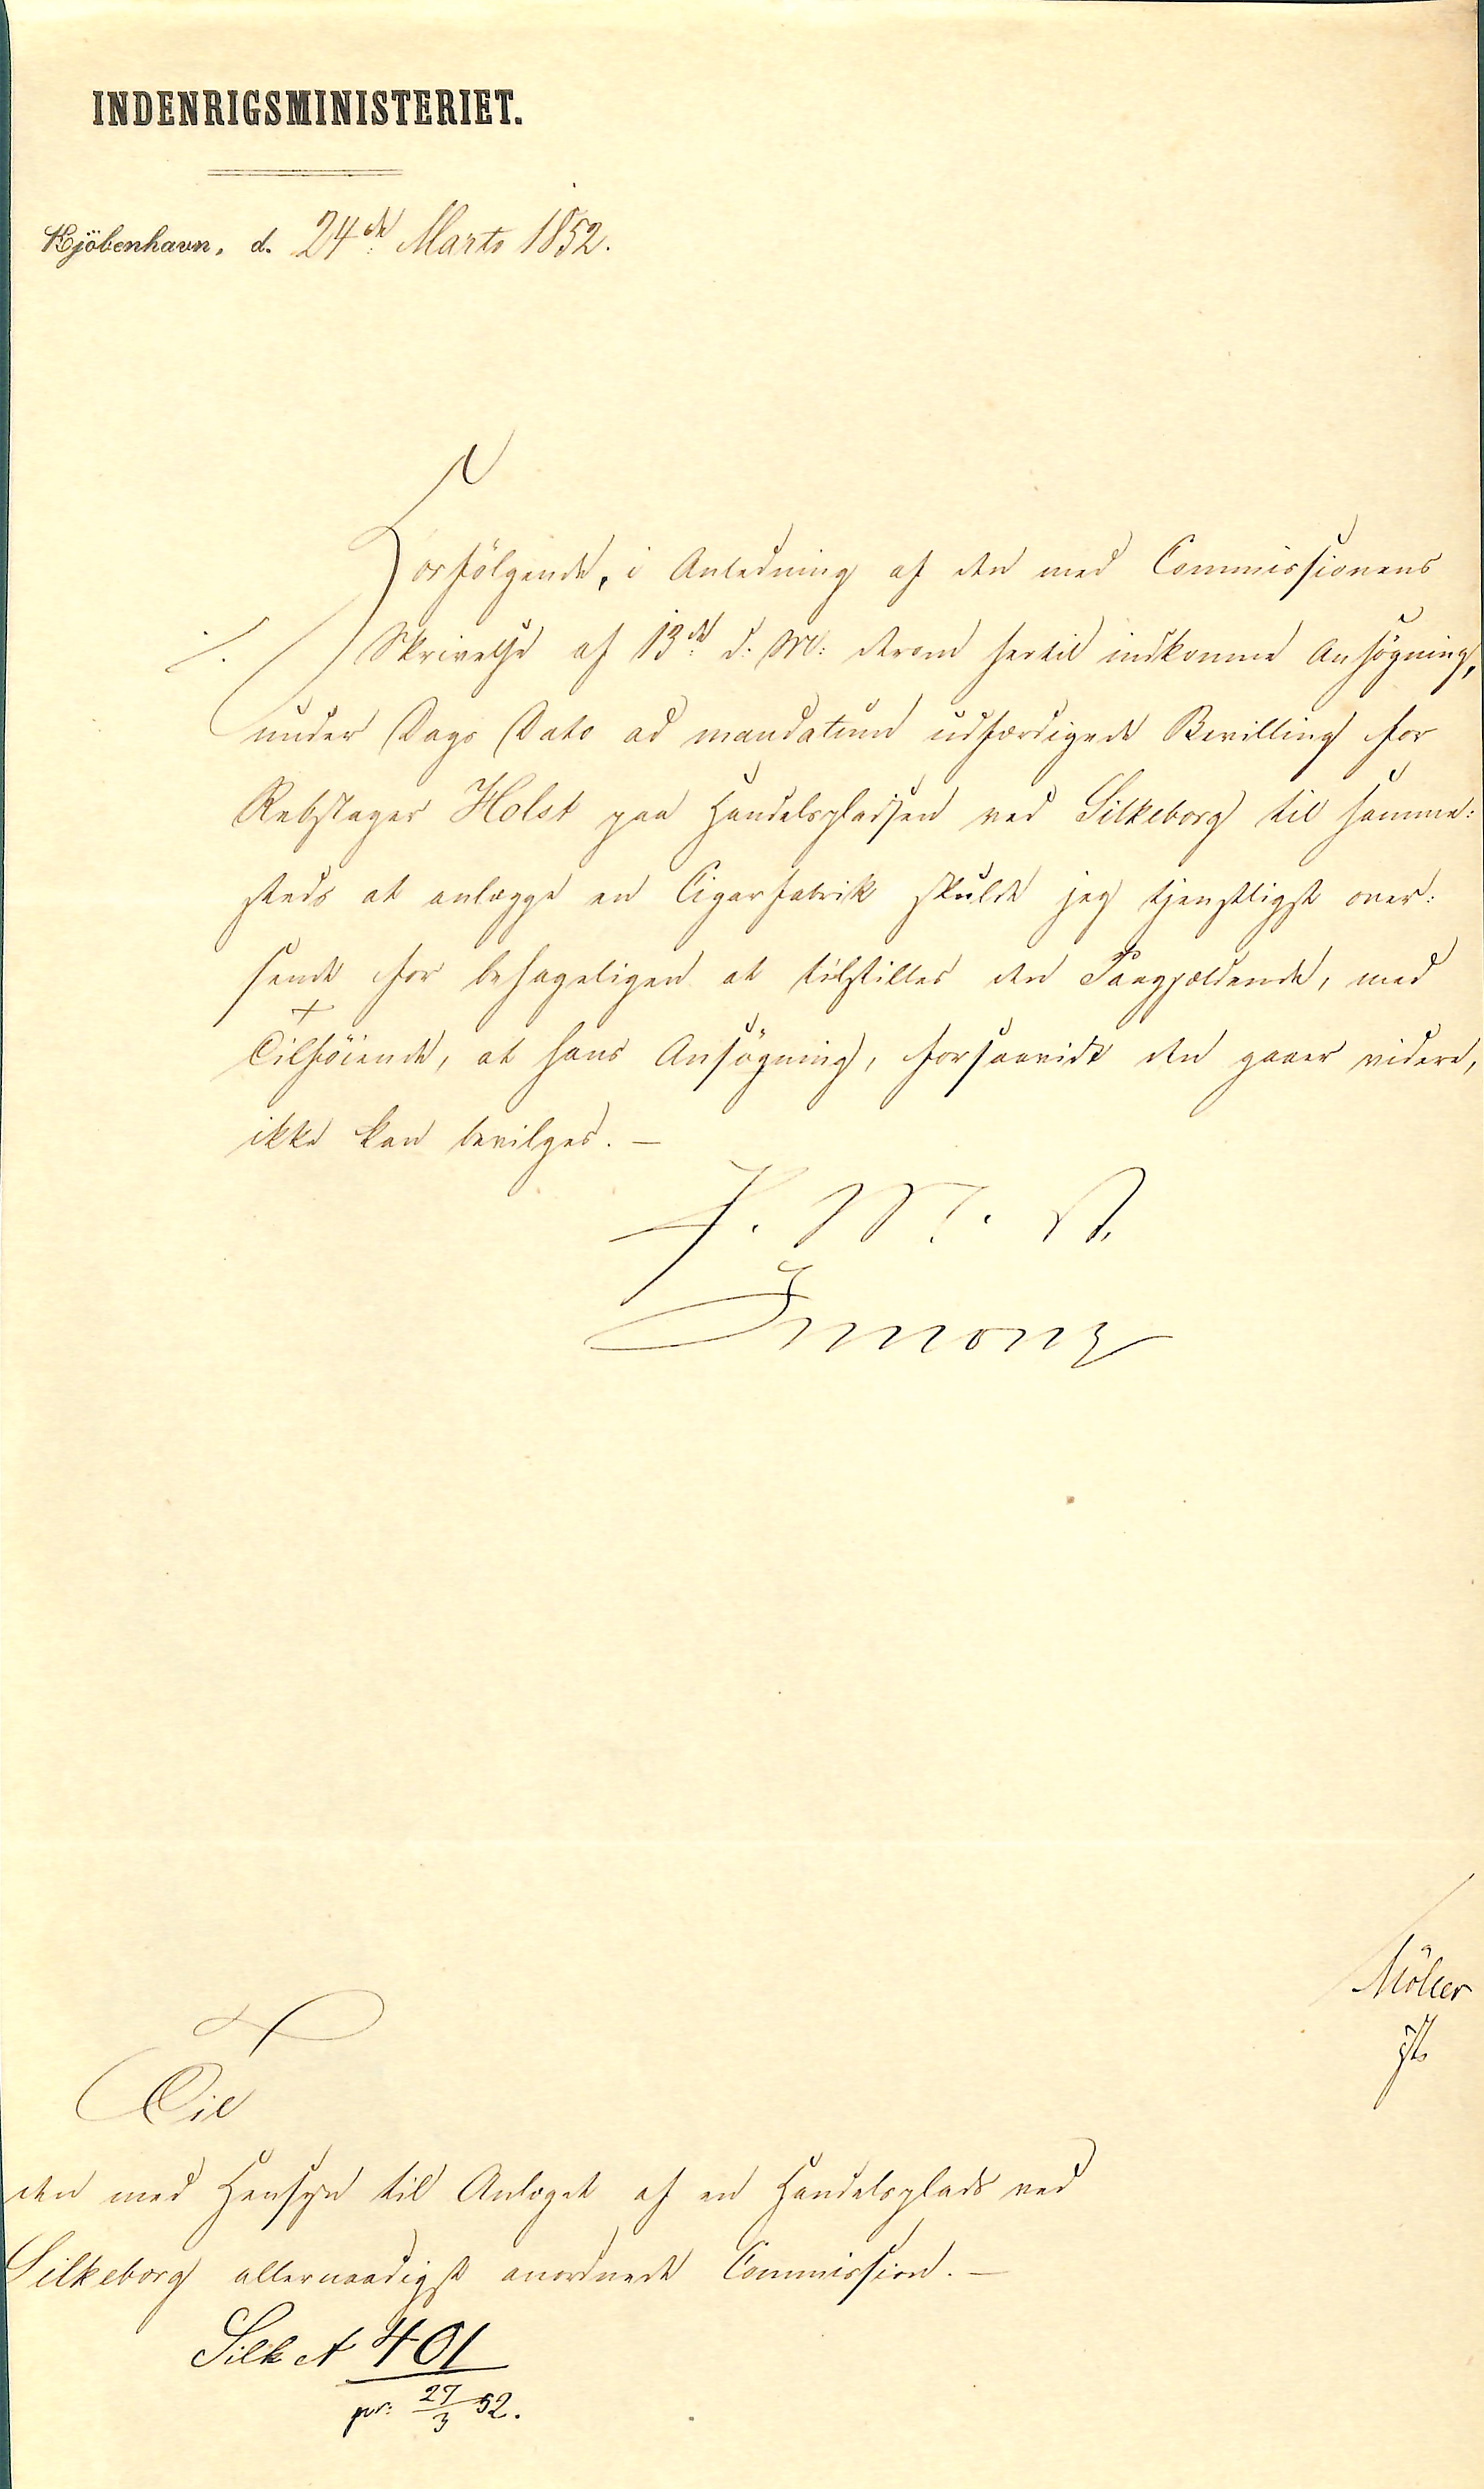 INDENRIGSMINISTERIET.
Kjöbenhavn, d. 24de Marts 1852.
Forfölgende, i Anledning af den med Commissionens
./. Skrivelse af 13de d: M: derom hertil indkomne Ansögning,
under Dags Dato ad mandatum udfærdigede Bevilling for
Rebslager Holst paa Handelspladsen ved Silkeborg til samme:
steds at anlægge en Cigarfabrik skulde jeg tjenstligst over:
sende for behageligen at tilstilles den Paagjældende, med
Tilföiende, at hans Ansögning, forsaavidt den gaaer videre,
ikke kan bevilges. —
F. M. A.
Simony
Möller
Til
den med Hensyn til Anlæget af en Handelsplads ved
Silkeborg allernaadigst anordnede Commission. —
Silk A 401
pr: 27/3 52.